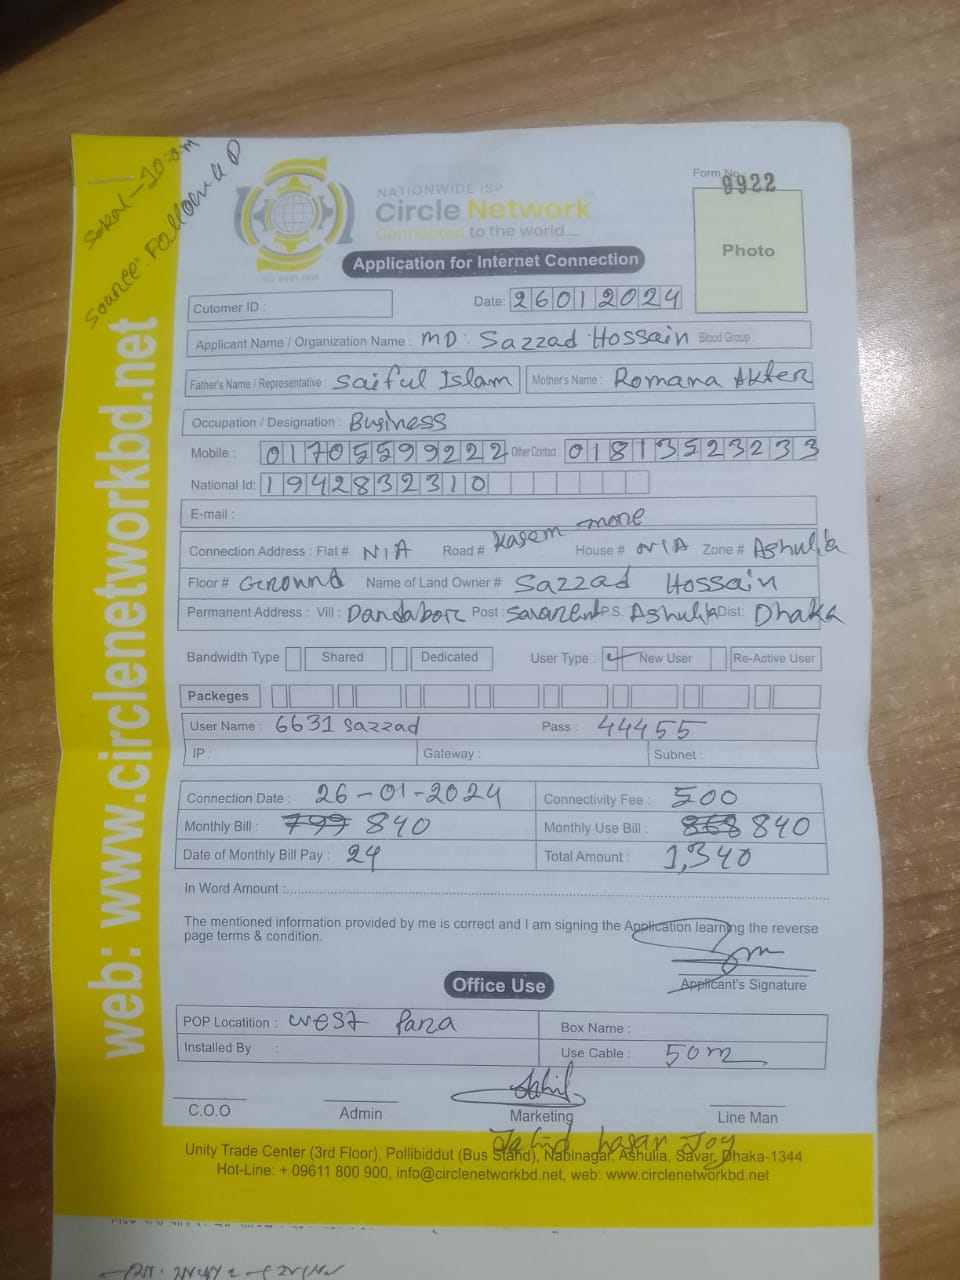 Sokal - 10:am
Source: Follow U D
NATIONWIDE ISP
Circle Network
Connected to the world....
Form No. 9922
Photo
Application for Internet Connection
Cutomer ID :
Date: 26012024
Applicant Name / Organization Name : MD: Sazzad Hossain Blood Group :
Father's Name / Representative : Saiful Islam Mother's Name : Romana Akter
Occupation / Designation : Business
Mobile : 01705599222 Other Contact : 01813523233
National Id: 1942832310
E-mail :
Connection Address : Flat # N/A Road # Kasem mone House # N/A Zone # Ashulia
Floor # Ground Name of Land Owner # Sazzad Hossain
Permanent Address : Vill : Dandabor Post : P.S. Ashulia Dist: Dhaka
Bandwidth Type Shared Dedicated User Type : New User Re-Active User
Packeges
User Name : 6631 sazzad Pass : 44455
IP : Gateway : Subnet :
Connection Date : 26-01-2024 Connectivity Fee : 500
Monthly Bill : 799 840 Monthly Use Bill : 868 840
Date of Monthly Bill Pay : 24 Total Amount : 1,340
In Word Amount :
The mentioned information provided by me is correct and I am signing the Application learning the reverse
page terms & condition.
Applicant's Signature
Office Use
POP Locatition : West Para Box Name :
Installed By : Use Cable : 50m
C.O.O Admin Marketing Line Man
Jahid hasan Joy
Unity Trade Center (3rd Floor), Pollibiddut (Bus Stand), Nabinagar, Ashulia, Savar, Dhaka-1344
Hot-Line: + 09611 800 900, info@circlenetworkbd.net, web: www.circlenetworkbd.net
web: www.circlenetworkbd.net